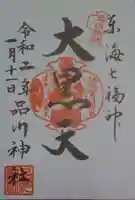 東海七福神
大黒天
令和二年
一月十一日
品川神社